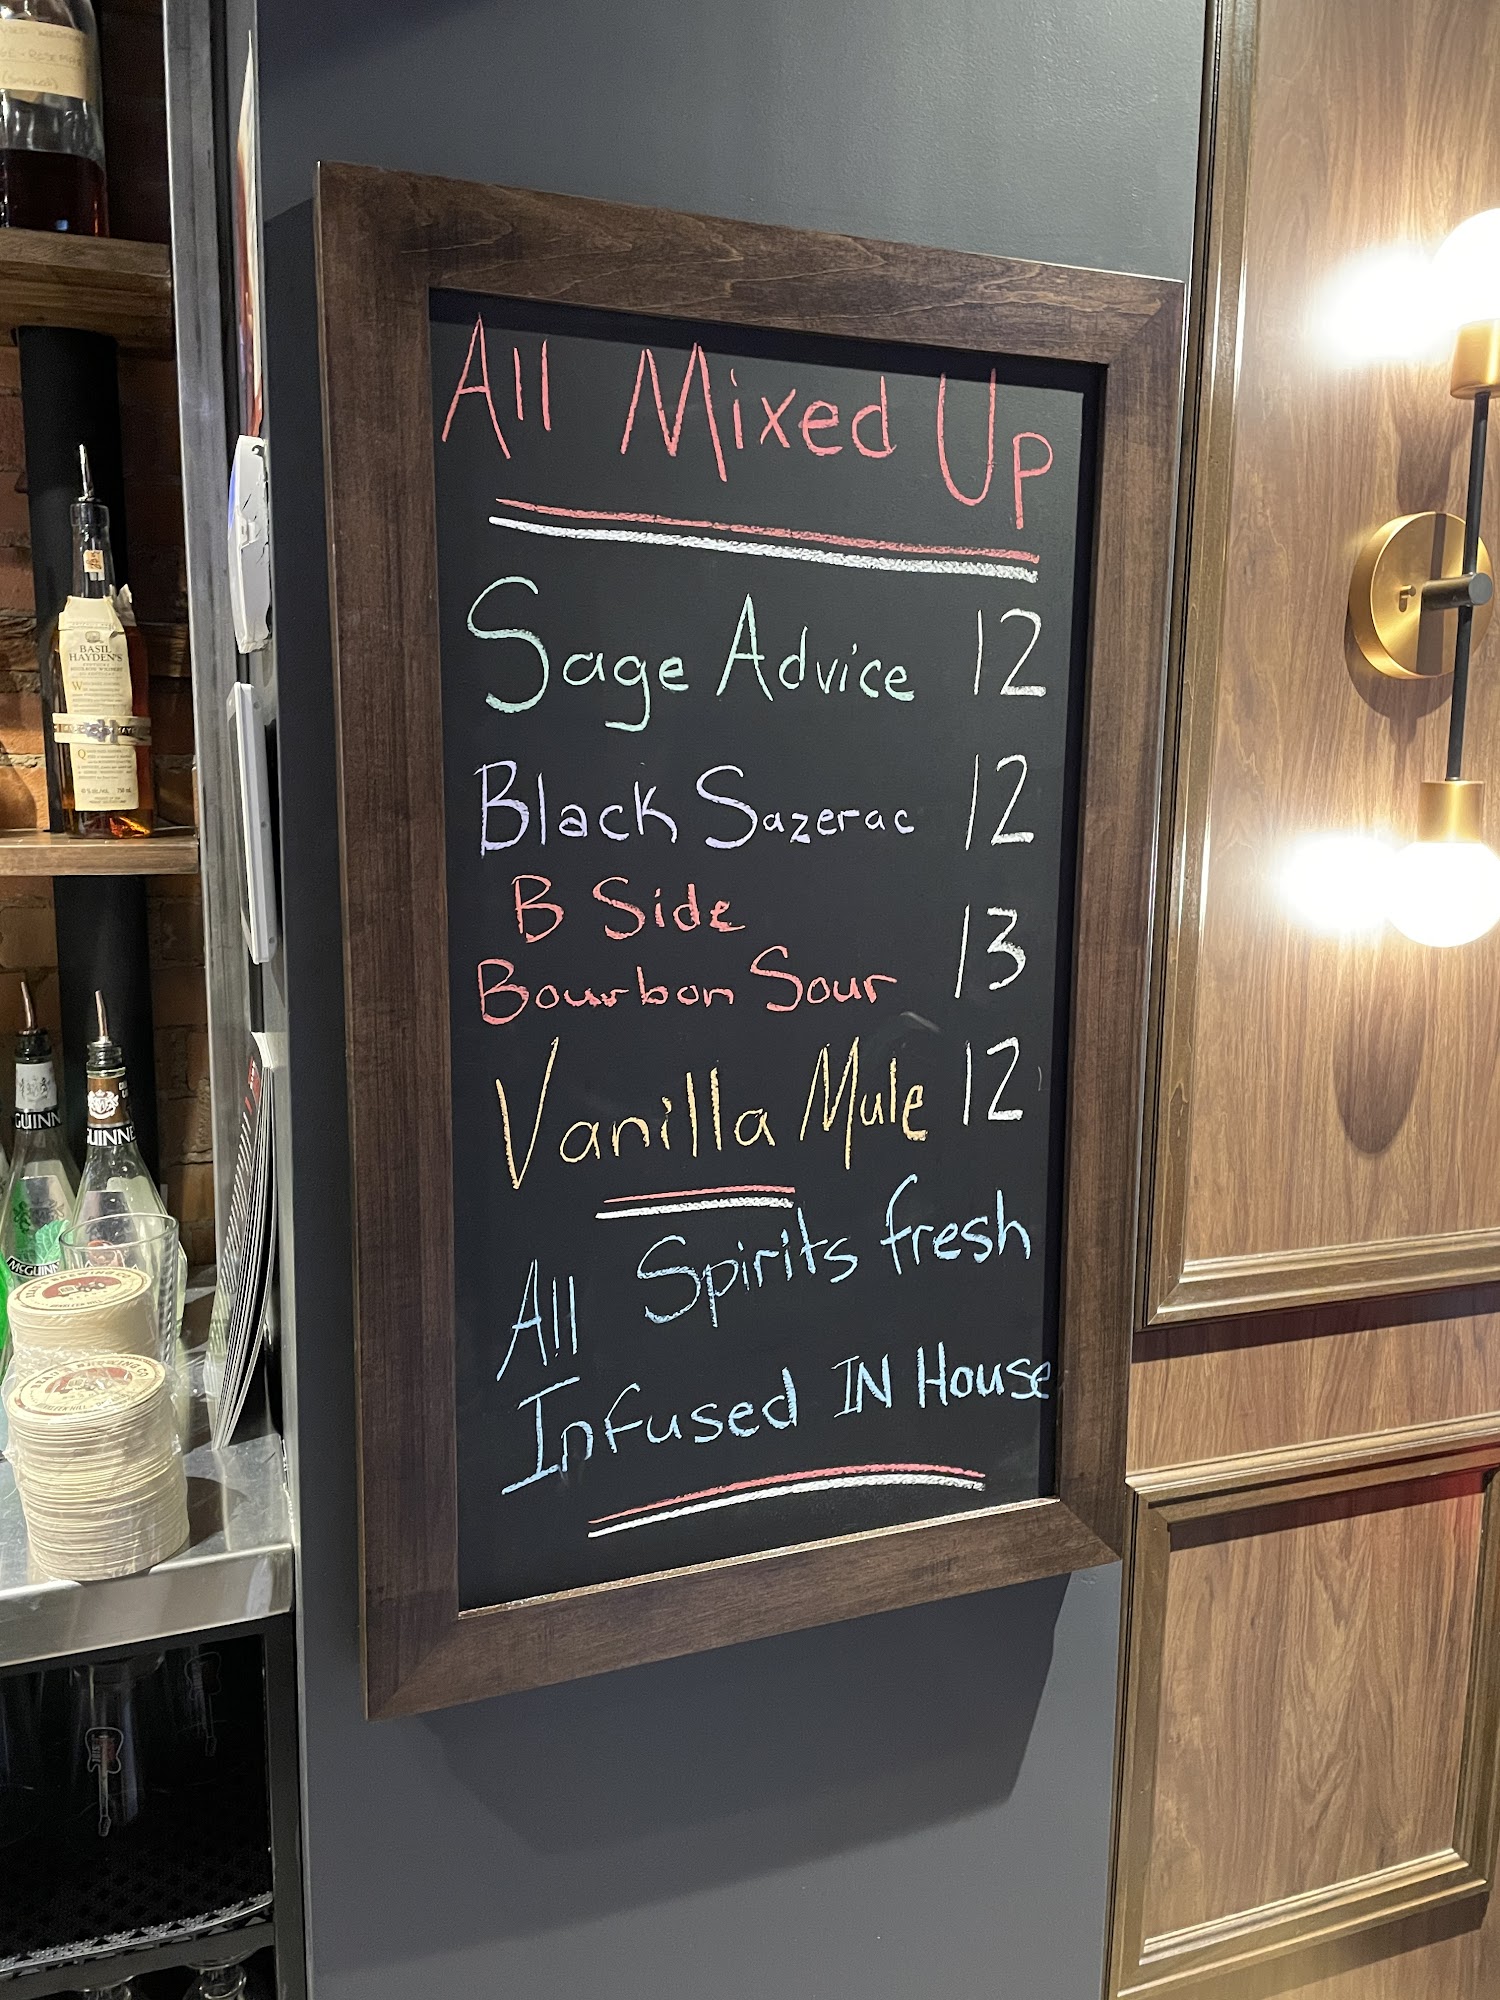 All Mixed Up
Sage Advice 12
Black Sazerac 12
B Side
Bourbon Sour 13
Vanilla Mule 12
All Spirits fresh
Infused IN House
BASIL
HAYDEN'S
GUINN
GUINNE
McGUINN
BREWING CO